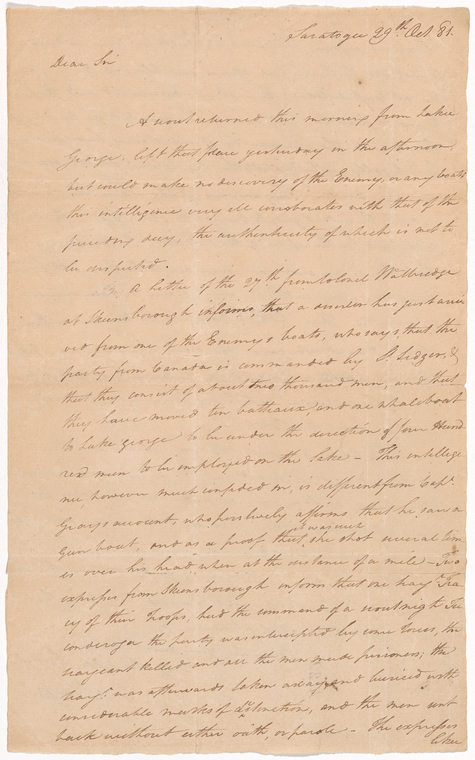 Saratoga 29th. Oct. 81.
Dear Sir
A scout returned this morning from Lake
George, left that place yesterday in the afternoon,
but could make no discovery of the Enemy, or any boats
this intelligence very ill corroborates with that of the
preceding day, the authenticity of which is not to
be suspected.
A letter of the 27th from Colonel Walbridge
at Skeensborough informs, that a deserter has just arri
ved from one of the Enemys boats, who says that the
party from Canada is commanded by St. Ledger, &
that they consist of about two thousand men, and that
they have moved ten batteaux and one whaleboat
to Lake george to be under the direction of four Hund
red men to be employed on the Lake – This intellige
nce however much confided in, is different from Capt.
Grays account, who possitively affirms that he saw a
gun boat, and as a proof that it was such she shot several tim
es over his head, when at the distance of a mile – Two
expresses from Skeensborough inform that one Sarjt. Tra
cy of their troops, had the command of a scout nigh Ti
conderoga the party was intercepted by some Tories, the
sarjeant killed and all the men made prisoners; the
Sarjt. was afterwards taken and burried with
considerable marks of distinction, and the men sent
back without either oath, or parole – The expresses
like